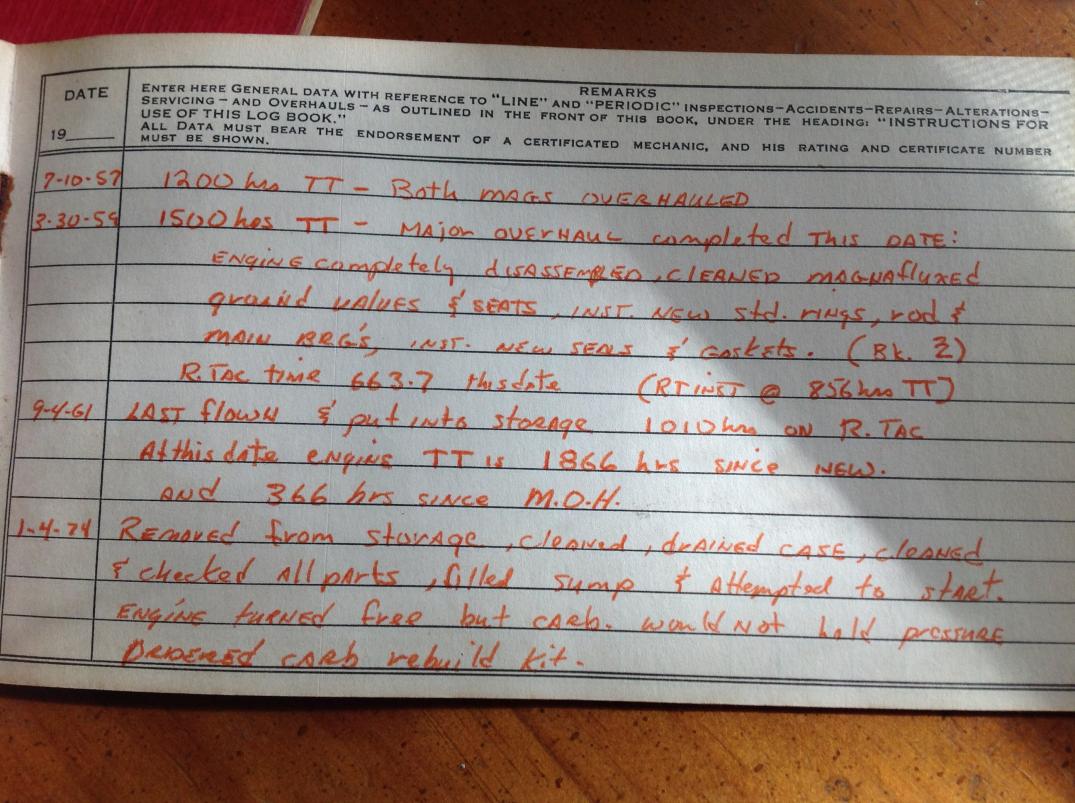 REMARKS
DATE
ENTER HERE GENERAL DATA WITH REFERENCE TO "LINE" AND "PERIODIC" INSPECTIONS-ACCIDENTS-REPAIRS-ALTERATIONS-
SERVICING-AND OVERHAULS-AS OUTLINED IN THE FRONT OF THIS BOOK, UNDER THE HEADING: "INSTRUCTIONS FOR
USE OF THIS LOG BOOK."
19___ ALL DATA MUST BEAR THE ENDORSEMENT OF A CERTIFICATED MECHANIC, AND HIS RATING AND CERTIFICATE NUMBER
MUST BE SHOWN.
7-10-57 1200 hrs TT - Both MAGS OVERHAULED
3-30-59 1500 hrs TT - MAjor OVERHAUL completed THIS DATE:
ENGINE completely dISASSEMBLED, CLEANED MAGNAfluxed
ground VALVES & SEATS, INST. NEW Std. rINgs, rod &
MAIN BRG'S, INST. NEW SEALS & GASkets. (Bk. 2)
R.TAC time 663.7 this date (RT INST @ 856 hrs TT)
9-4-61 LAST flown & put INto storAge 1010 hrs ON R.TAC
At this date ENgINE TT is 1866 hrs SINce NEW.
AND 366 hrs SINCE M.O.H.
1-4-74 REMOVED from storAge, cleANed, drAINED CASE, cleANED
& checked All pArts, filled sump & Attempted to stArt.
ENGINE turNED free but cArb. would Not hold pressurE
ORDERED cArb rebuild kit.